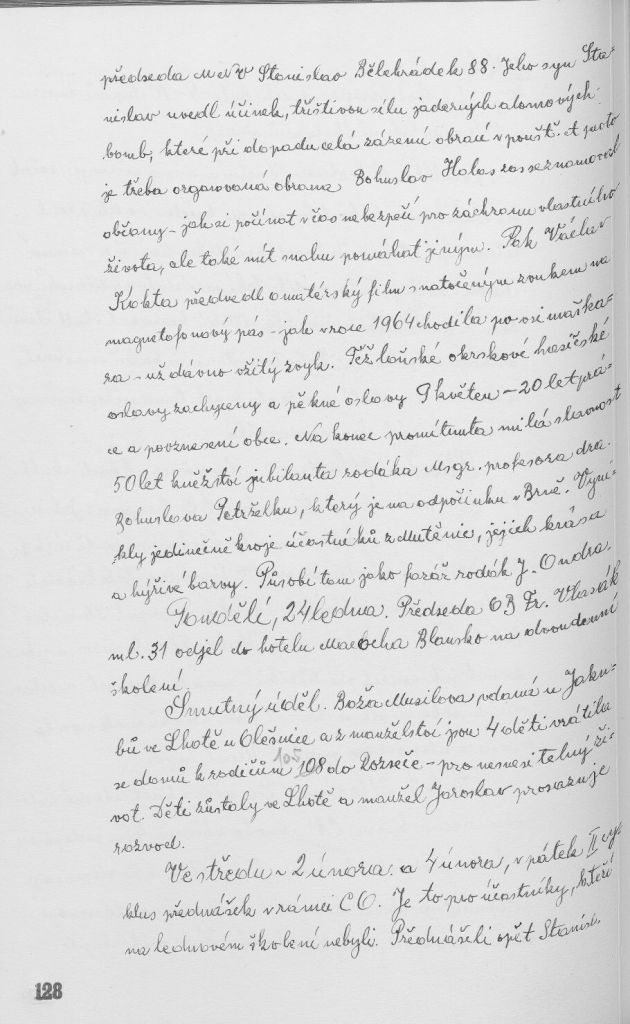 předseda MNV Stanislav Bělehrádek 88. Jeho syn Sta-
nislav uvedl účinek, tříštivou sílu jaderných atomových
bomb, které při dopadu celá zázemí obrací v poušť. A proto
je třeba organovaná obrana Bohuslav Halas zas seznamoval
občany - jak si počínat v čas nebezpečí pro záchranu vlastního
života, ale také mít snahu pomáhat jiným. Pak Václav
Kokta předvedl amatérský film s natočeným zvukem na
magnetofonový pás - jak v roce 1964 chodila po vsi maška-
ra - už dávno vžitý zvyk. Též loňské okrskové hasičské
oslavy zachyceny a pěkné oslavy 9 květen - 20 let prá-
ce a povznesení obce. Na konec promítnuta milá slavnost
50 let kněžství jubilanta rodáka Msgr. profesora dra.
Bohuslava Petrželku, který je na odpočinku v Brně. Vyni-
kly jedinečně kroje účastníků z Mutěnic, jejich krása
a hýřivé barvy. Působí tam jako farář rodák J. Ondra.
Pondělí, 24 ledna. Předseda OB Fr. Vlasák
ml. 31 odjel do hotelu Macocha Blansko na dvoudenní
školení.
Smutný úděl. Boža Musilova vdaná u Jaku-
bů ve Lhotě u Olešnice a z manželství jsou 4 děti vrátila
105
se domů k rodičům 108 do Rozseče - pro nesnesitelný ži-
vot. Děti zůstaly ve Lhotě a manžel Jaroslav prosazuje
rozvod.
Ve středu - 2 února a 4 února, v pátek II cyk
klus přednášek v rámci CO. Je to pro účastníky, kteří
na lednovém školení nebyli. Přednášeli opět Stanisl.
128